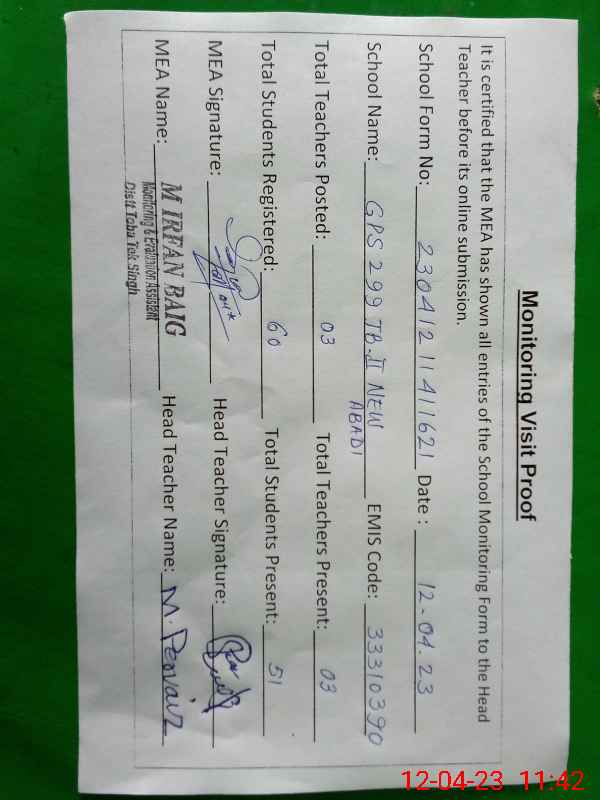 Monitoring Visit Proof
It is certified that the MEA has shown all entries of the School Monitoring Form to the Head
Teacher before its online submission.
School Form No: 230412 11 411621 Date : 12-04.23
School Name: GPS 299 TB.II NEW ABADI EMIS Code: 33310390
Total Teachers Posted: 03 Total Teachers Present: 03
Total Students Registered: 60 Total Students Present: 51
MEA Signature: Head Teacher Signature:
MEA Name: M IRFAN BAIG Head Teacher Name: M. Pervaiz
Monitoring & Evaluation Assistant
Distt Toba Tek Singh
12-04-23 11:42